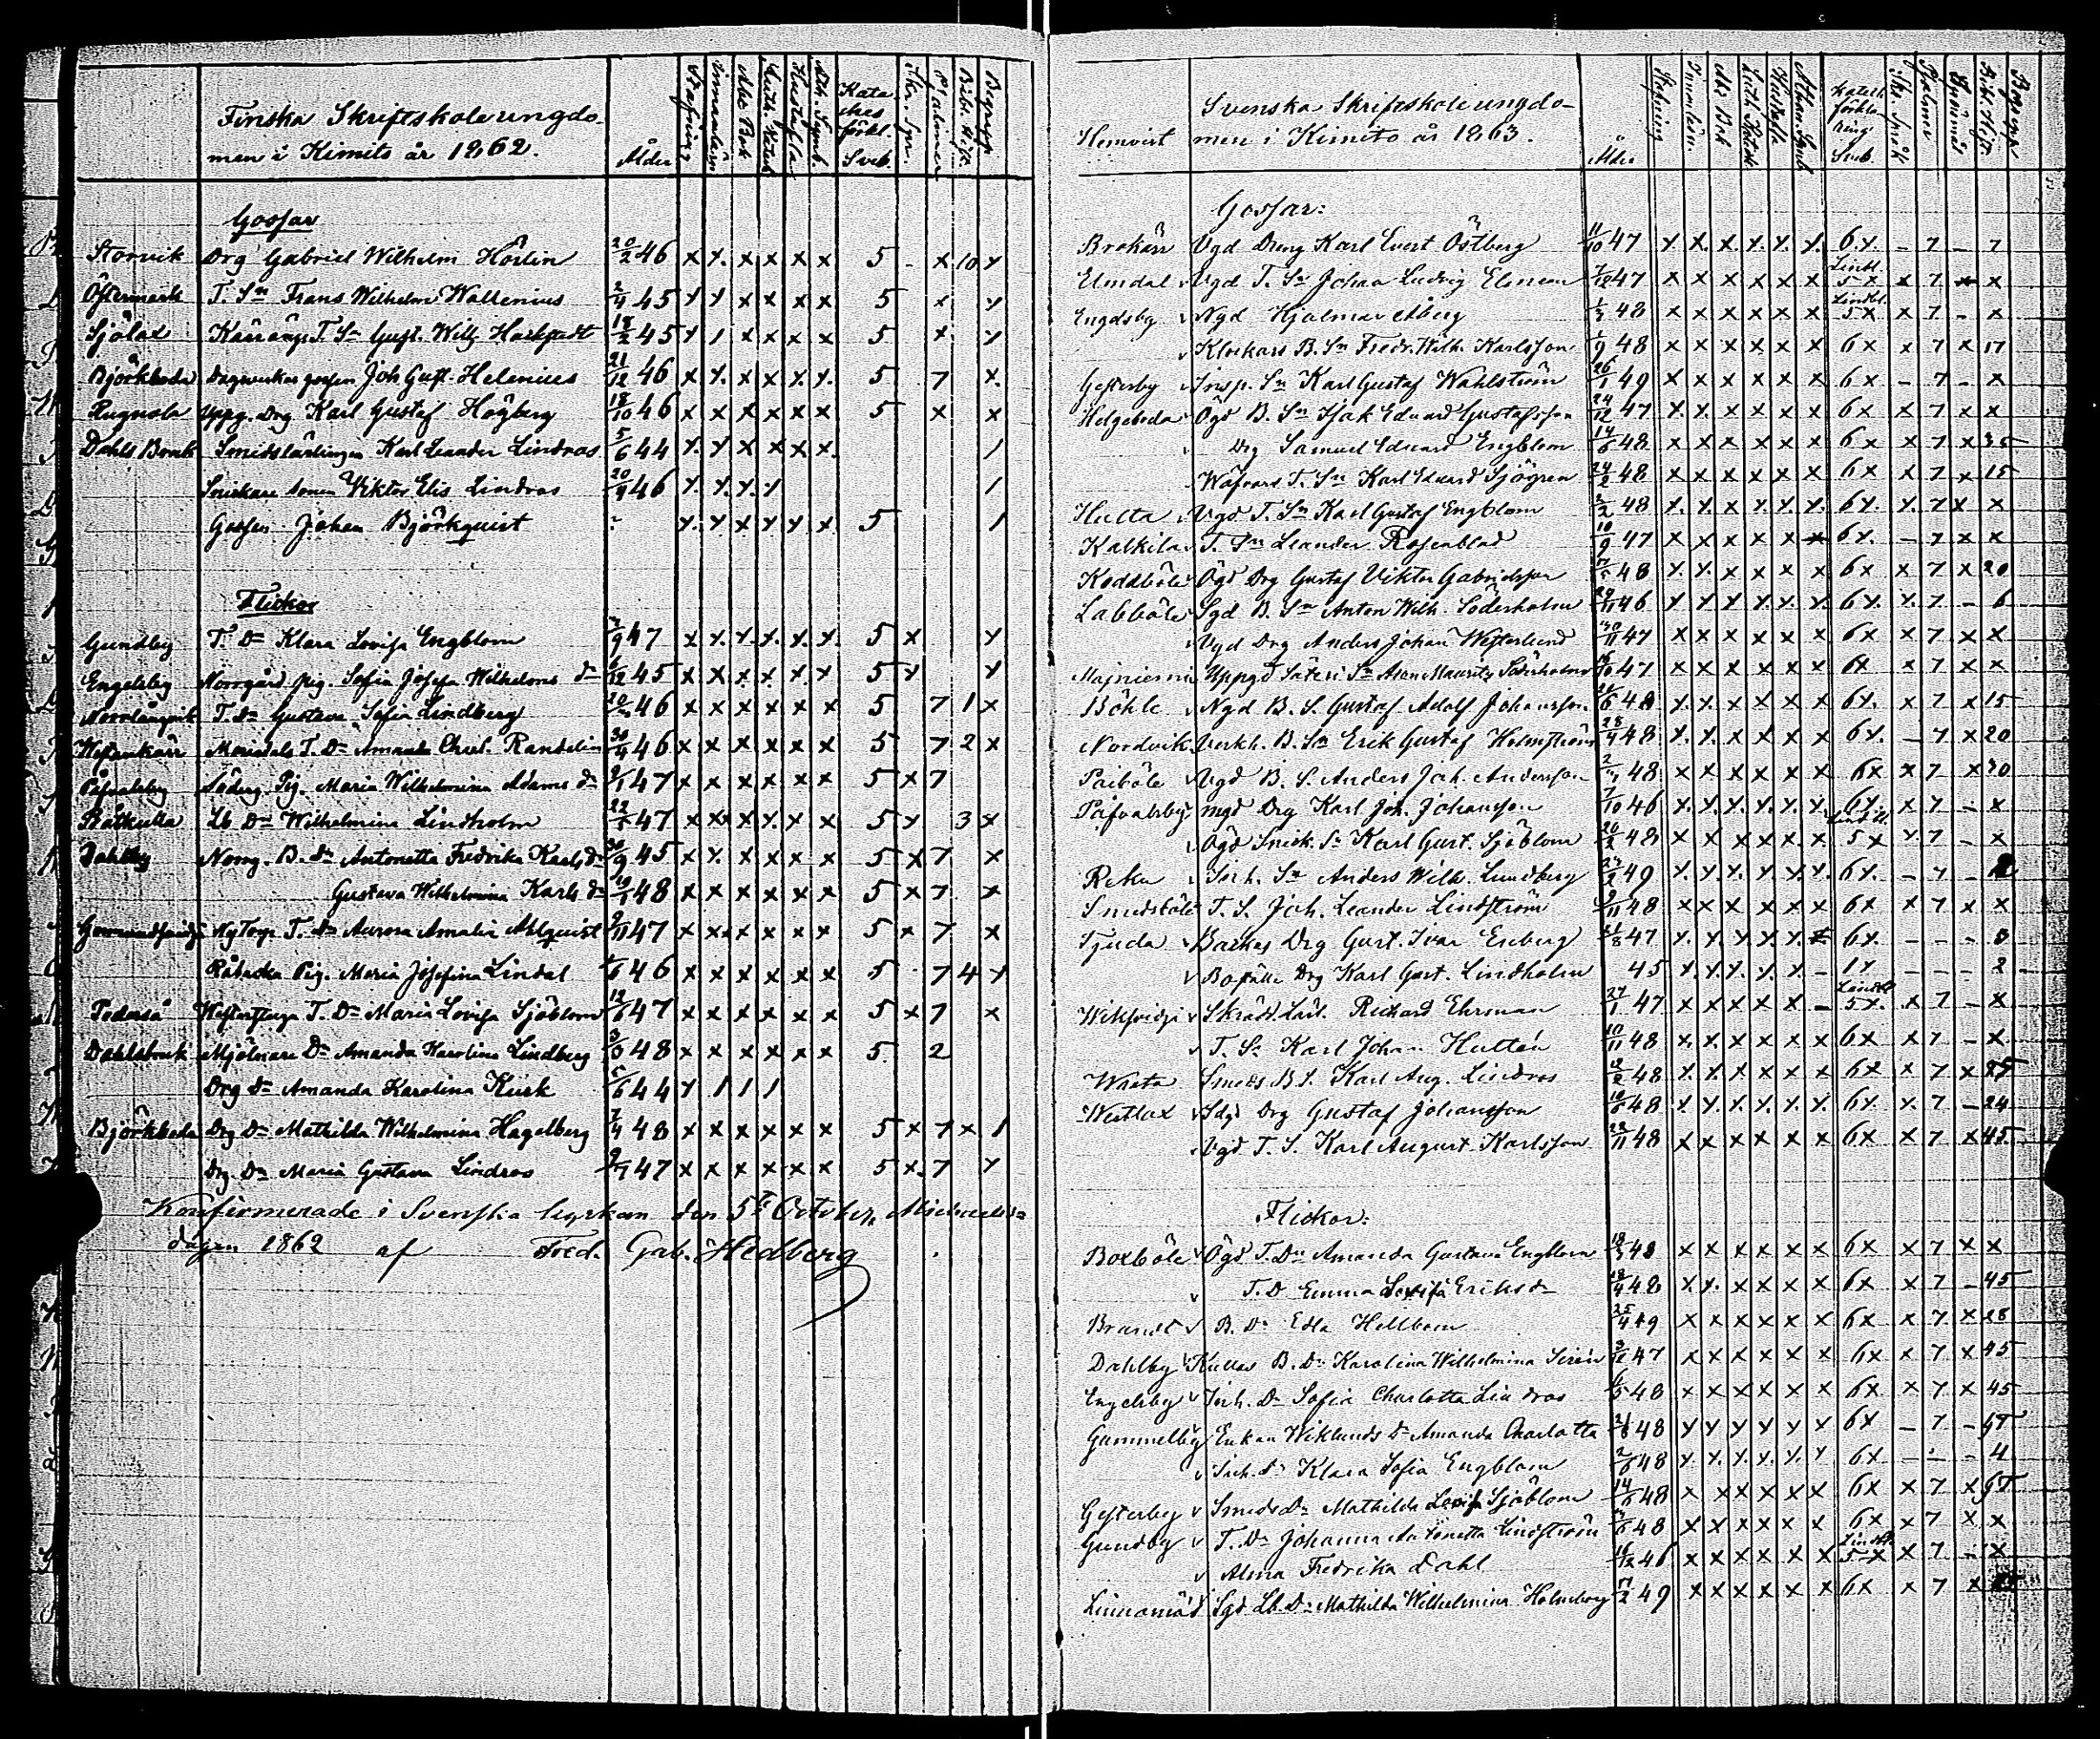 Finska Skriftskoleungdo-
men i Kimito år 1862.
Ålder Stafning Innanläsn Abc Bok Luth. Katek Hustafla Ath. Symb. Kateches förkl. Sveb. Skr. Spr. Psalmer Bibl. Hist. Begrepp
Gossar
Storvik Drg Gabriel Wilhelm Hörlin 20/2 46 x x x x x x 5 - x 10 x
Östermark T. Sn Frans Wilhelm Wallenius 2/4 45 x x x x x x 5 x x
Sjölax T. Sn Gust. Wilh. 18/2 45 x 1 x x x x 5 x x
Björkboda Joh Gust. Helenius 21/12 46 x x x x x x 5 7 x
Rugnola Uppg. Drg Karl Gustaf Högberg 18/10 46 x x x x x x 5 x x
Dahls Bruk Smidslärlingen Karl Leander Lindroos 5/6 44 x x x x x x 1
Snickare sonen Viktor Elis Lindroos 20/9 46 x x x 1 1
Gossen Johan Björkquist x x x x x x 5 1
Flickor
Gundby T. Dn Klara Lovisa Engblom 47 x x x x x x 5 x x
Engelsby Norrgård pig. Sofia Josefa Wilhelms dn 45 x x x x x x 5 x x
Norrlångvik T. Dn Gustava Sofia Lindberg 46 x x x x x x 5 7 1 x
T. Dn Amanda Christ. Randelin 46 x x x x x x 5 7 2 x
Söderg. Pig. Maria Wilhelmina Adams dn 47 x x x x x x 5 x 7
Råtkulla Lb Dn Wilhelmina Lindholm 47 x x x x x x 5 x 3 x
Dahlby Norrg. B. Dn Antonetta Fredrika Karls dn 45 x x x x x x 5 x 7 x
Gustava Wilhelmina Karls dn 48 x x x x x x 5 x 7 x
T. Dn Aurora Amalia Ahlquist 47 x x x x x x 5 x 7 x
Råbacka Pig. Maria Josefina Lindal 46 x x x x x x 5 - 7 4 x
T. Dn Maria Lovisa Sjöblom 47 x x x x x x 5 x 7 x
Dahlsbruk Mjölnare Dn Amanda Karolina Lindberg 48 x x x x x x 5 2
Drg Dn Amanda Karolina Kurk 5/6 44 x 1 1 1
Björkboda Drg Dn Mathilda Wilhelmina Hagelberg 48 x x x x x x 5 x 7 x 1
Drg. Dn Maria Gustava Lindroos 47 x x x x x x 5 x 7 x
Konfirmerade i Svenska kyrkan den 5te October,
dagen 1862 af Fred. Gab. Hedberg
Hemvist
Svenska Skriftskoleungdo-
men i Kimito år 1863.
Ålder Stafning Innanläsn Abc Bok Luth Katek Hustafla Athan Symb Katech förklaring Sveb. Skr. Språk Psalmer Bibl. Hist. Begrepp
Gossar:
Brokärr Vgd Dreng Karl Evert Östberg 11/10 47 x x x x x x 6 x - 7 - 7
Elmdal Vgd T. Sn Johan Ludvig Elmén 47 x x x x x x Lindbl. 5 x x 7 x x
Engelsby Ngd Hjalmar Åberg 48 x x x x x x Lindbl. 5 x x 7 - x
Klockars B. Sn Fredr. Wilh. Karlsson 1/9 48 x x x x x x 6 x x 7 x 17
Gesterby Insp. Sn Karl Gustaf Wahlström 26/1 49 x x x x x x 6 x - 7 - x
Helgeboda Ögd B. Sn Isak Eduard Gustafsson 24/12 47 x x x x x x 6 x x 7 x x
Drg Samuel Eduard Engblom 14/6 48 x x x x x x 6 x x 7 x 35
Wäfvars T. Sn Karl Eduard Sjögren 24/2 48 x x x x x x 6 x x 7 x 15
Hulta Vgd T. Sn Karl Gustaf Engblom 48 x x x x x x 6 x x 7 x x
Kalkila T. Sn Leander Rosenblad 10/9 47 x x x x x x 6 x - 7 x x
Koddböle Ögd Drg Gustaf Viktor Gabrielsson 48 x x x x x x 6 x x 7 x 20
Labböle Sgd B. Sn Anton Wilh. Söderholm 29/11 46 x x x x x x 6 x x 7 - 6
Vgd Drg Anders Johan Westerlund 30/11 47 x x x x x x 6 x x 7 x x
Majniemi Uppgd Säteri Sn Maurits Söderholm 47 x x x x x x 6 x x 7 x x
Böhle Ngd B. S. Gustaf Adolf Johansson 48 x x x x x x 6 x x 7 x 15
Nordvik Verkh. B. Sn Erik Gustaf Holmström 48 x x x x x x 6 x - 7 x 20
Paiböle Vgd B. S. Anders Joh. Andersson 48 x x x x x x 6 x x 7 x 30
Påfvalsby mgd Drg Karl Joh. Johansson 7/10 46 x x x x x x 6 x x 7 - x
Ögd Snick. Sn Karl Gust. Sjöblom 20/2 48 x x x x x x Lindbl. 5 x x 7 - x
Reku Inh. Sn Anders Wilh. Lundberg 49 x x x x x x 6 x - 7 -
Smedsböle T. S. Joh. Leander Lindström 9/11 48 x x x x x x 6 x x 7 x x
Tjuda Backas Drg Gust. Ivar Enberg 21/8 47 x x x x x x 6 x - - - 3
Drg Karl Gust. Lindholm 45 x x x x x - 1 x - - - 2
Skrädd. Lärl. Richard Ehrman 27/1 47 x x x x x - Lindbl. 5 x x 7 - x
T. Sn Karl Johan Hultén 10/11 48 x x x x x x 6 x x 7 - x
Wreta Smeds B. S. Karl Aug. Lindroos 48 x x x x x x 6 x x 7 x
Westlax Sdgd Drg Gustaf Johansson 48 x x x x x x 6 x x 7 - 24
Vgd T. S. Karl August Karlsson 48 x x x x x x 6 x x 7 x 45
Flickor:
Boxböle Ögd T. Dn Amanda Gustava Engblom 48 x x x x x x 6 x x 7 x x
T. D Emma Lovisa Eriksdn 48 x x x x x x 6 x x 7 - 45
Brandt B. Dn Edla Hellbom 25/4 49 x x x x x x 6 x x 7 x 28
Dahlby Kullas B. Dn Karolina Wilhelmina Sirén 47 x x x x x x 6 x x 7 x 45
Engelsby Inh. Dn Sofia Charlotta Lindroos 48 x x x x x x 6 x x 7 x 45
Gammelby Enkan Wiklunds Dn Amanda Charlotta 48 x x x x x x 6 x - 7 -
Inh. Dn Klara Sofia Engblom 48 x x x x x x 6 x - - - 4
Gesterby Smeds Dn Mathilda Lovisa Sjöblom 14/6 48 x x x x x x 6 x x 7 x
Gundby T. Dn Johanna Antonetta Lindström 48 x x x x x x 6 x x 7 x x
Alma Fredrika Dahl 16/12 46 x x x x x x Lindbl. 5 x x 7 - x
Sgd Lb. Dn Mathilda Wilhelmina Holmberg 49 x x x x x x 6 x x 7 x